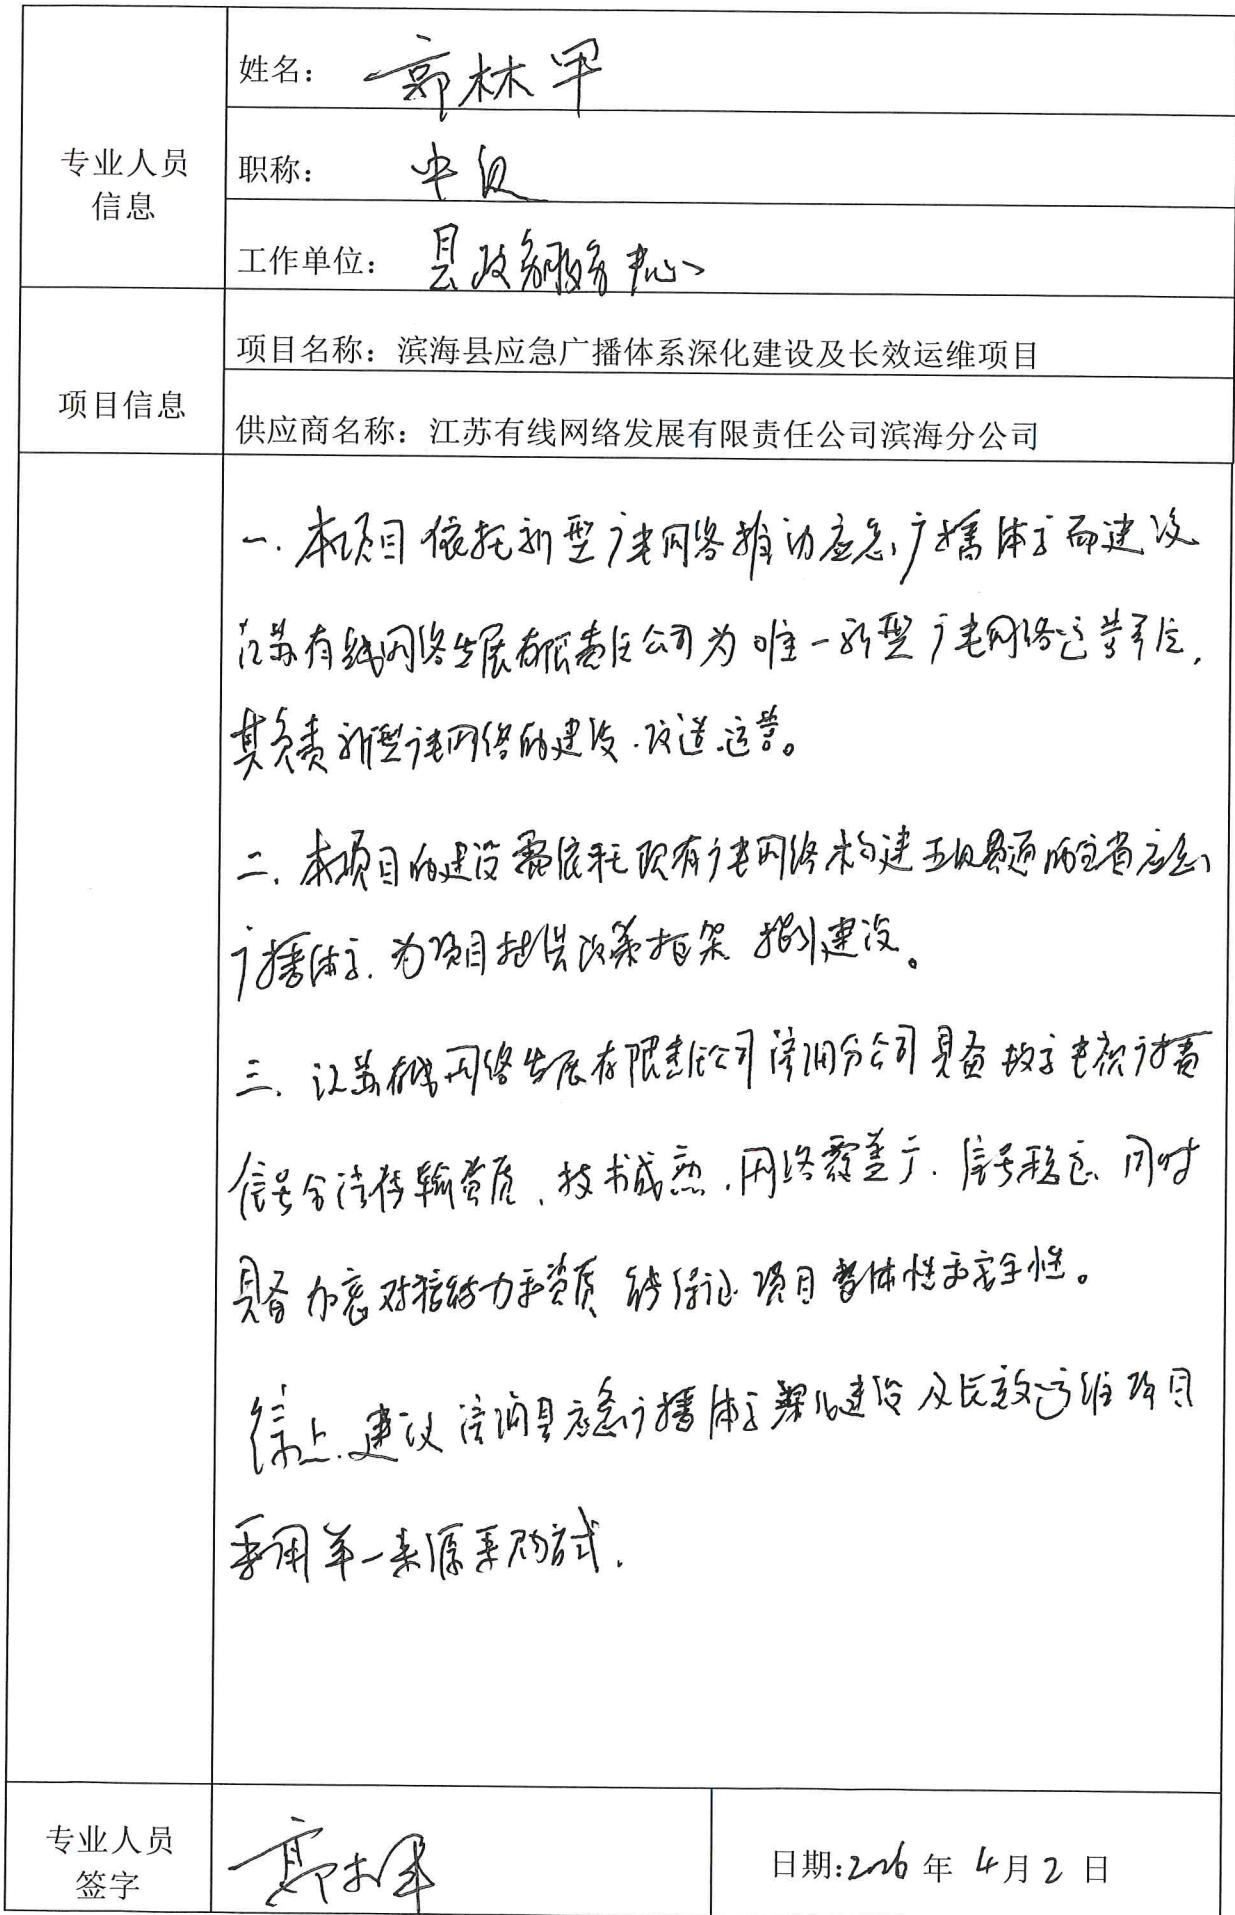 姓名：郭林军
专业人员
信息
职称：中级
工作单位：县政务服务中心
项目信息
项目名称：滨海县应急广播体系深化建设及长效运维项目
供应商名称：江苏有线网络发展有限责任公司滨海分公司
一、本项目依托新型广电网络推动应急广播体系而建设
江苏有线网络发展有限责任公司为唯一新型广电网络运营单位，
其负责新型广电网络的建设、改造、运营。
二、本项目的建设需依托现有广电网络来构建五级贯通的全省应急
广播体系，为项目提供政策框架 指引建设。
三、江苏有线网络发展有限责任公司滨海分公司具备数字电视广播
信号合法传输资质，技术成熟，网络覆盖广，信号稳定 同时
具备加密对接能力和资质 能保证项目整体性和安全性。
综上，建议滨海县应急广播体系深化建设及长效运维项目
采用单一来源采购方式。
专业人员
签字
郭林军
日期:2026年4月2日